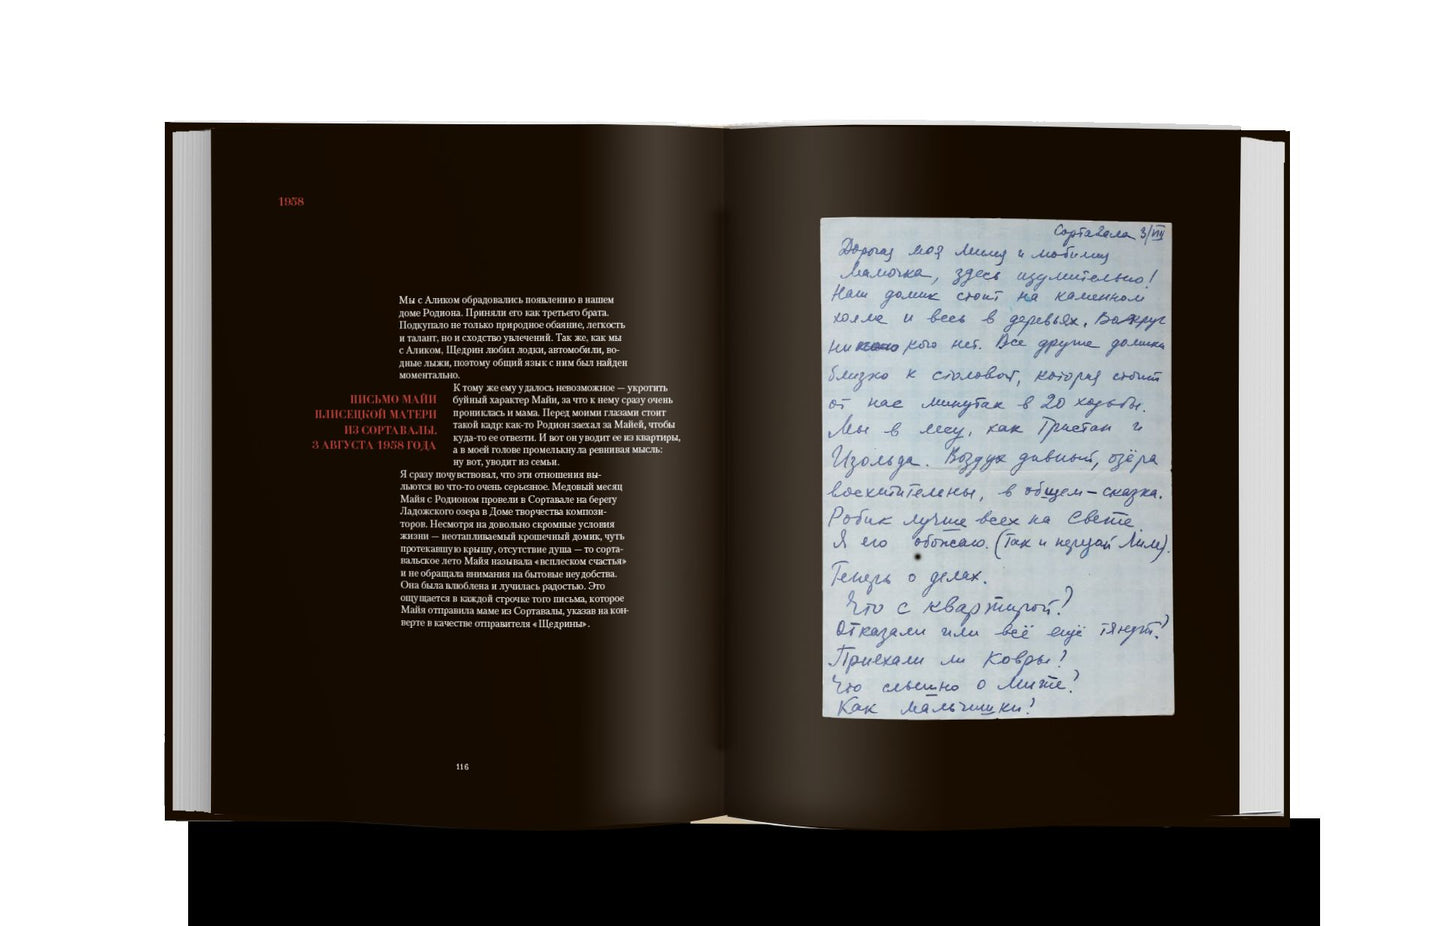 1958
Мы с Аликом обрадовались появлению в нашем
доме Родиона. Приняли его как третьего брата.
Подкупало не только природное обаяние, легкость
и талант, но и сходство увлечений. Так же, как мы
с Аликом, Щедрин любил лодки, автомобили, во-
дные лыжи, поэтому общий язык с ним был найден
моментально.
ПИСЬМО МАЙИ
ПЛИСЕЦКОЙ МАТЕРИ
ИЗ СОРТАВАЛЫ.
3 АВГУСТА 1958 ГОДА
К тому же ему удалось невозможное — укротить
буйный характер Майи, за что к нему сразу очень
прониклась и мама. Перед моими глазами стоит
такой кадр: как-то Родион заехал за Майей, чтобы
куда-то ее отвезти. И вот он уводит ее из квартиры,
а в моей голове промелькнула ревнивая мысль:
ну вот, уводит из семьи.
Я сразу почувствовал, что эти отношения вы-
льются во что-то очень серьезное. Медовый месяц
Майя с Родионом провели в Сортавале на берегу
Ладожского озера в Доме творчества компози-
торов. Несмотря на довольно скромные условия
жизни — неотапливаемый крошечный домик, чуть
протекавшую крышу, отсутствие душа — то сорта-
вальское лето Майя называла «всплеском счастья»
и не обращала внимания на бытовые неудобства.
Она была влюблена и лучилась радостью. Это
ощущается в каждой строчке того письма, которое
Майя отправила маме из Сортавалы, указав на кон-
верте в качестве отправителя «Щедрины».
116
Сортавала 3/VIII
Дорогая моя милая и любимая
мамочка, здесь изумительно!
Наш домик стоит на каменном
холме и весь в деревьях. Вокруг
ни кого нет. Все другие домики
близко к столовой, которая стоит
от нас минутах в 20 ходьбы.
Мы в лесу, как Тристан и
Изольда. Воздух дивный, озёра
восхитительны, в общем – сказка.
Робик лучше всех на свете.
Я его обожаю. (Так и передай Лиле).
Теперь о делах.
Что с квартирой?
Отказали или всё ещё тянут?
Приехали ли ковры?
Что слышно о Мите?
Как мальчишки?